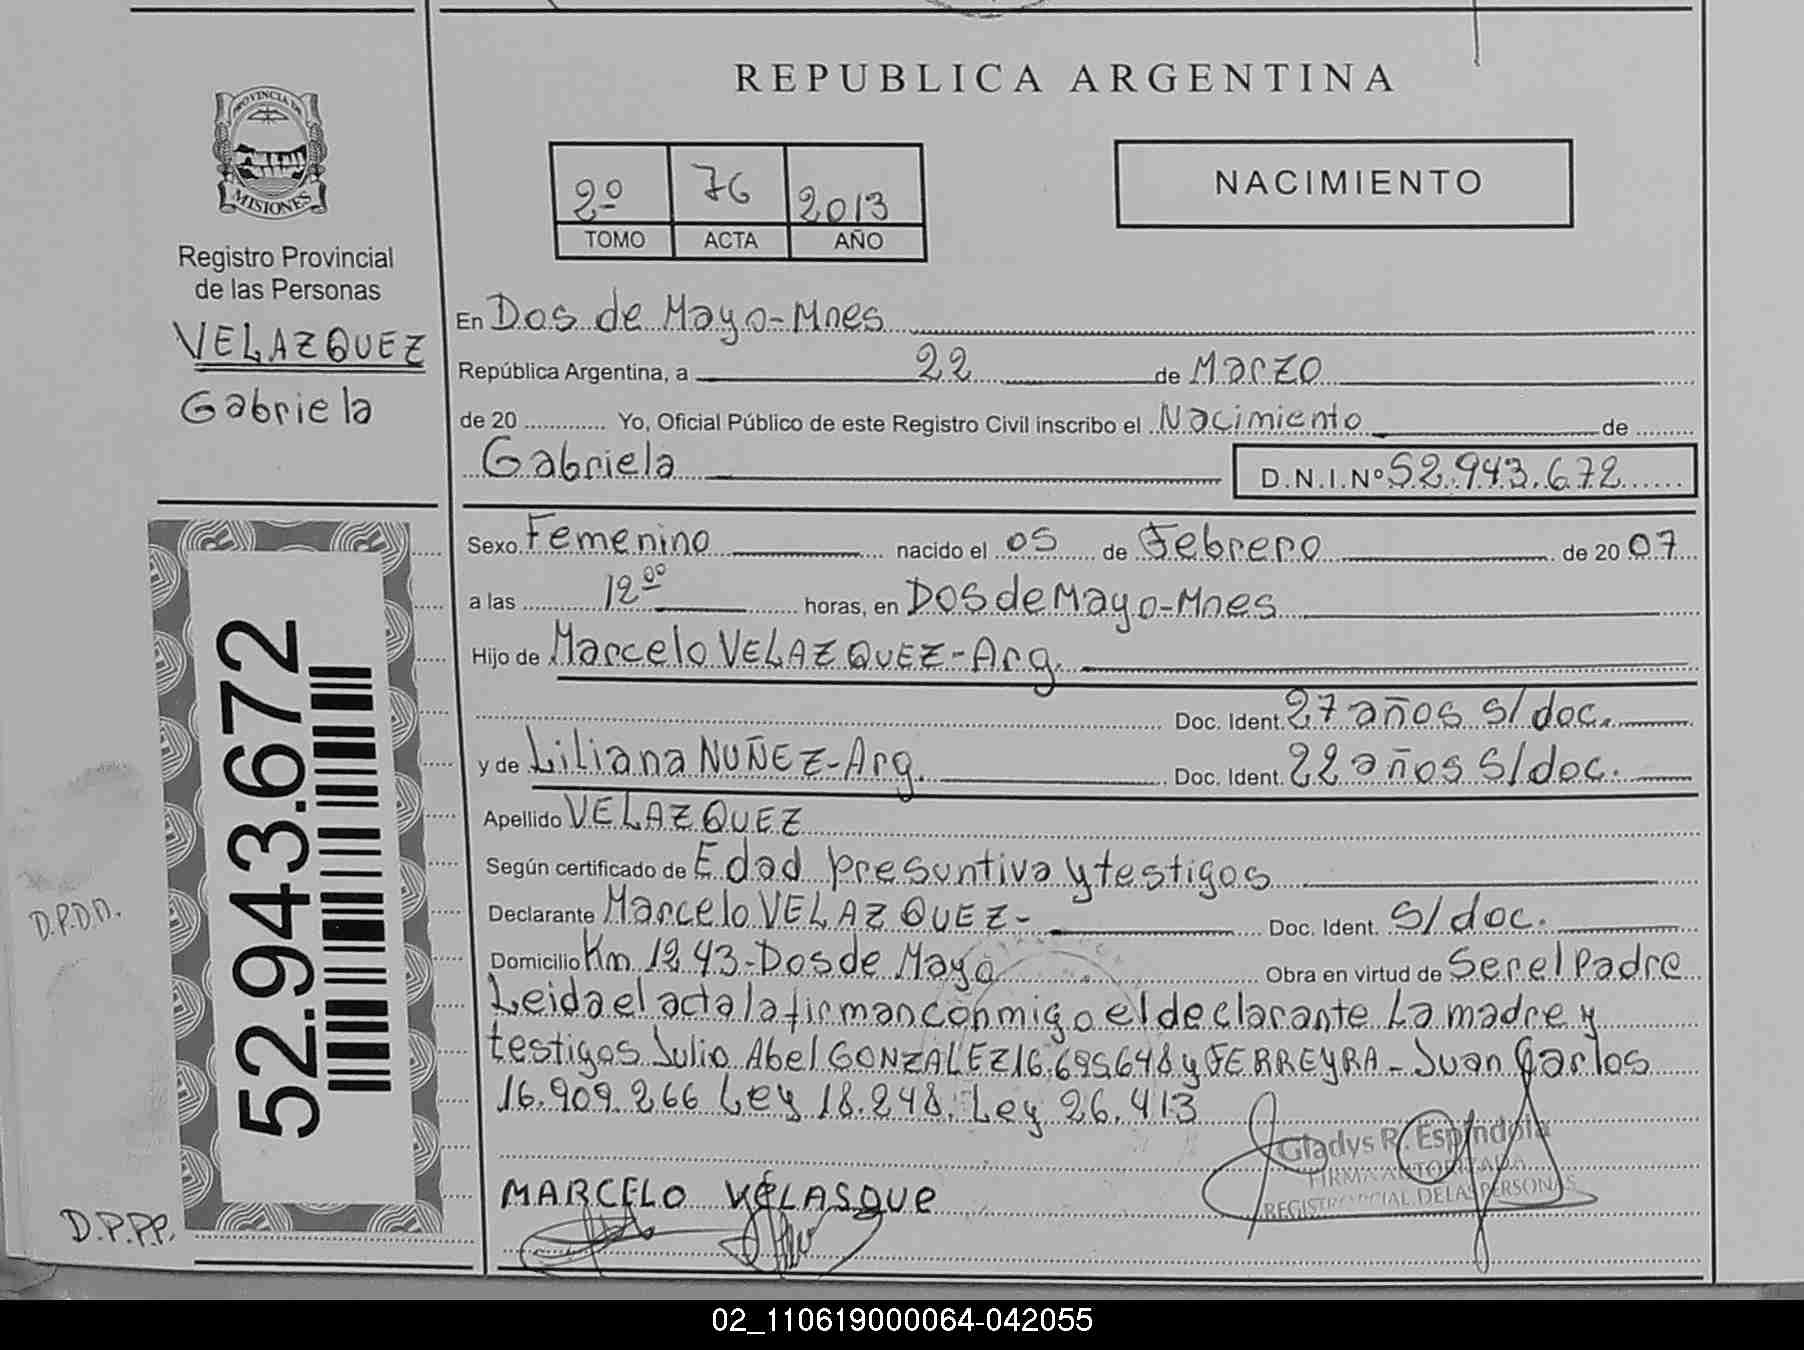 REPUBLICA ARGENTINA
PROVINCIA DE
MISIONES
Registro Provincial
de las Personas
VELAZQUEZ
Gabriela
2º 76 2013
TOMO ACTA AÑO
NACIMIENTO
En Dos de Mayo-Mnes
República Argentina, a 22 de Marzo
de 20 ............. Yo, Oficial Público de este Registro Civil inscribo el Nacimiento de
Gabriela D.N.I.Nº 52.943.672
Sexo Femenino nacido el 05 de Febrero de 20 07
a las 12ºº horas, en Dos de Mayo-Mnes
Hijo de Marcelo VELAZQUEZ-Arg.
Doc. Ident. 27 años s/doc.
y de Liliana NUÑEZ-Arg. Doc. Ident. 22 años s/doc.
Apellido VELAZQUEZ
Según certificado de Edad presuntiva y testigos
Declarante Marcelo VELAZQUEZ- Doc. Ident. s/doc.
Domicilio Km 1243-Dos de Mayo Obra en virtud de Ser el Padre
Leida el acta la firman conmigo el declarante La madre y
testigos Julio Abel GONZALEZ 16.695648 y FERREYRA-Juan Carlos
16.909.266 Ley 18.248. Ley 26.413
MARCELO VELASQUE
Gladys R. Espindola
FIRMA AUTORIZADA
REGISTRO PCIAL DE LAS PERSONAS
52.943.672
D.P.D.D.
D.P.P.P.
02_110619000064-042055